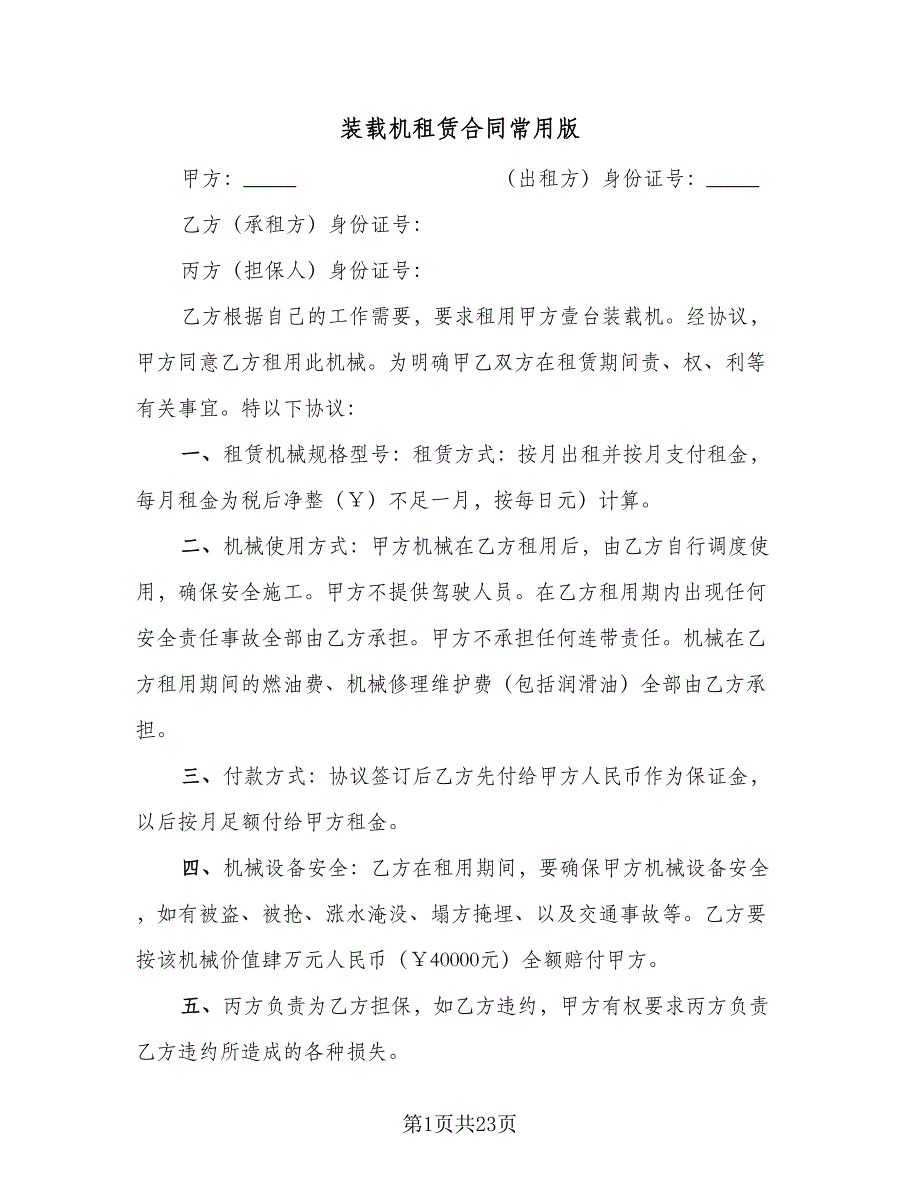 装载机租赁合同常用版
甲方：_____ （出租方）身份证号：_____
乙方（承租方）身份证号：
丙方（担保人）身份证号：
乙方根据自己的工作需要，要求租用甲方壹台装载机。经协议，
甲方同意乙方租用此机械。为明确甲乙双方在租赁期间责、权、利等
有关事宜。特以下协议：
一、租赁机械规格型号：租赁方式：按月出租并按月支付租金，
每月租金为税后净整（￥）不足一月，按每日元）计算。
二、机械使用方式：甲方机械在乙方租用后，由乙方自行调度使
用，确保安全施工。甲方不提供驾驶人员。在乙方租用期内出现任何
安全责任事故全部由乙方承担。甲方不承担任何连带责任。机械在乙
方租用期间的燃油费、机械修理维护费（包括润滑油）全部由乙方承
担。
三、付款方式：协议签订后乙方先付给甲方人民币作为保证金，
以后按月足额付给甲方租金。
四、机械设备安全：乙方在租用期间，要确保甲方机械设备安全
，如有被盗、被抢、涨水淹没、塌方掩埋、以及交通事故等。乙方要
按该机械价值肆万元人民币（￥40000元）全额赔付甲方。
五、丙方负责为乙方担保，如乙方违约，甲方有权要求丙方负责
乙方违约所造成的各种损失。
第1页共23页